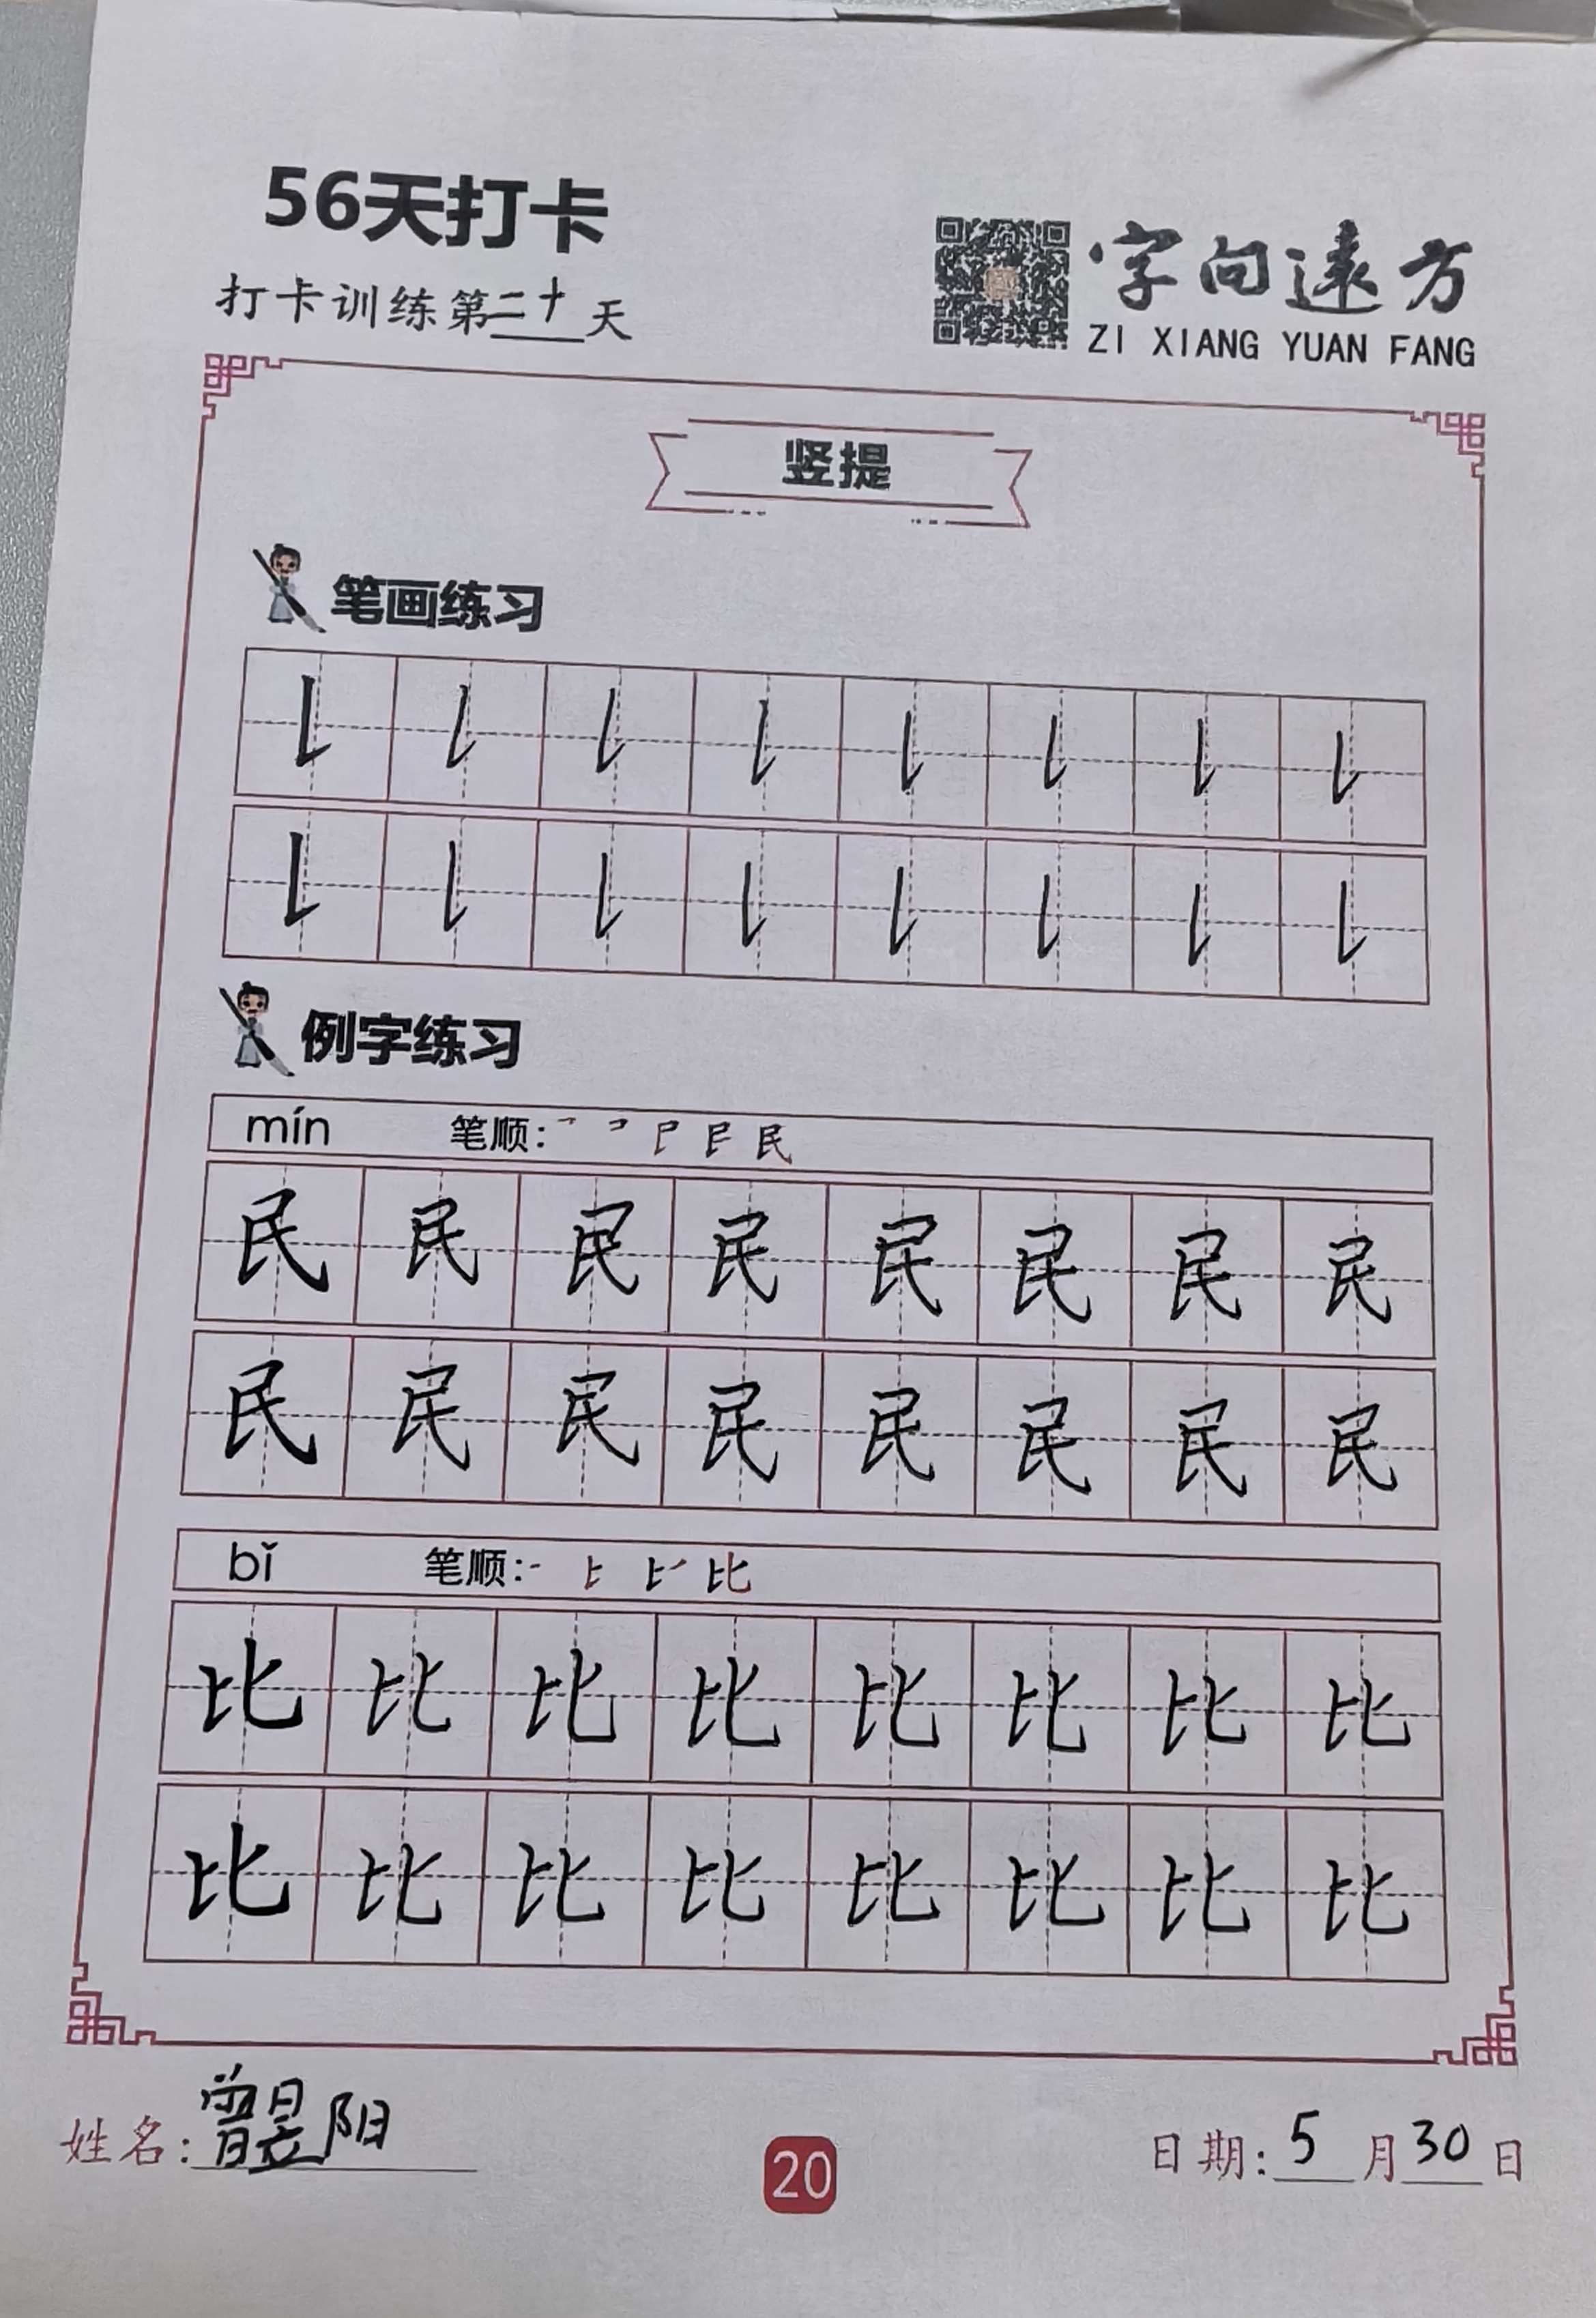 56天打卡
打卡训练第二十天
字向遠方
ZI XIANG YUAN FANG
竖提
笔画练习
㇙ ㇙ ㇙ ㇙ ㇙ ㇙ ㇙ ㇙
㇙ ㇙ ㇙ ㇙ ㇙ ㇙ ㇙ ㇙
例字练习
mín 笔顺: 民
民 民 民 民 民 民 民 民
民 民 民 民 民 民 民 民
bǐ 笔顺: 比
比 比 比 比 比 比 比 比
比 比 比 比 比 比 比 比
姓名: 曾昱阳
20
日期: 5 月 30 日